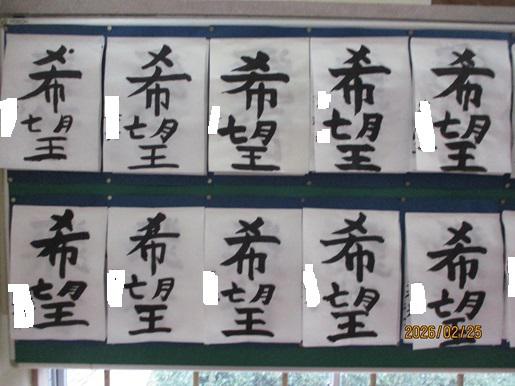 希望
希望
希望
希望
希望
希望
希望
希望
希望
希望
2026/02/25